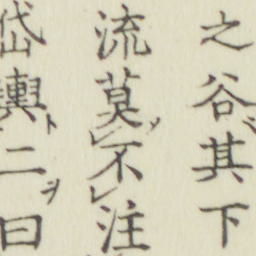 之谷其下
流莫不注
岱輿二曰